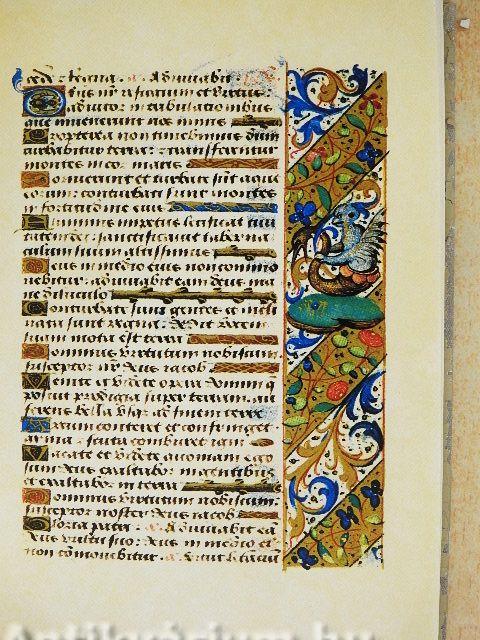 cede: Regina. a. Adiuvabit
Deus nr̄ refugium et virtus
adiutor in tribulationibus
que invenerunt nos nimis
Propterea non timebimus dum
turbabitur terra: et transferentur
montes in cor maris
Sonuerunt et turbate sūt aque
eorum: conturbati sunt montes
in fortitudine eius
Fluminis impetus letificat civi
tatem dei: sanctificavit taberna
culum suum altissimus
Deus in medio eius non commo
vebitur: adiuvabit eam deus ma
ne diluculo
Conturbate sunt gentes et incli
nata sunt regna: dedit vocem
suam mota est terra
Dominus virtutum nobiscum
susceptor nr̄ deus iacob
Venite et videte opera domini q
posuit prodigia super terram: au
ferens bella usq ad finem terre
Arcum conteret et confringet
arma: scuta comburet igni
Vacate et videte quoniam ego
sum deus exaltabor in gentibus
et exaltabor in terra
Dominus virtutum nobiscum:
susceptor noster deus iacob
Gloria patri. a. Adiuvabit eā
deus vultu suo: deus in medio ei
non cōmovebitur. a. Sicut letanciū